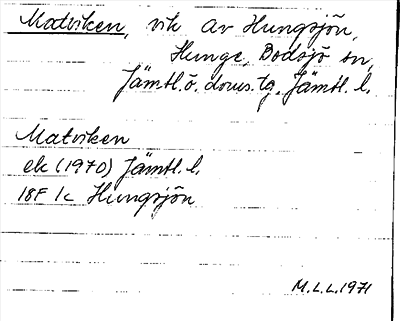 Matviken, vik av Hungsjön,
Hunge, Bodsjö sn,
Jämtl. ö. doms. tg, Jämtl. l.
Matviken
ek (1970) Jämtl. l.
18F 1c Hungsjön
M.L.L. 1971